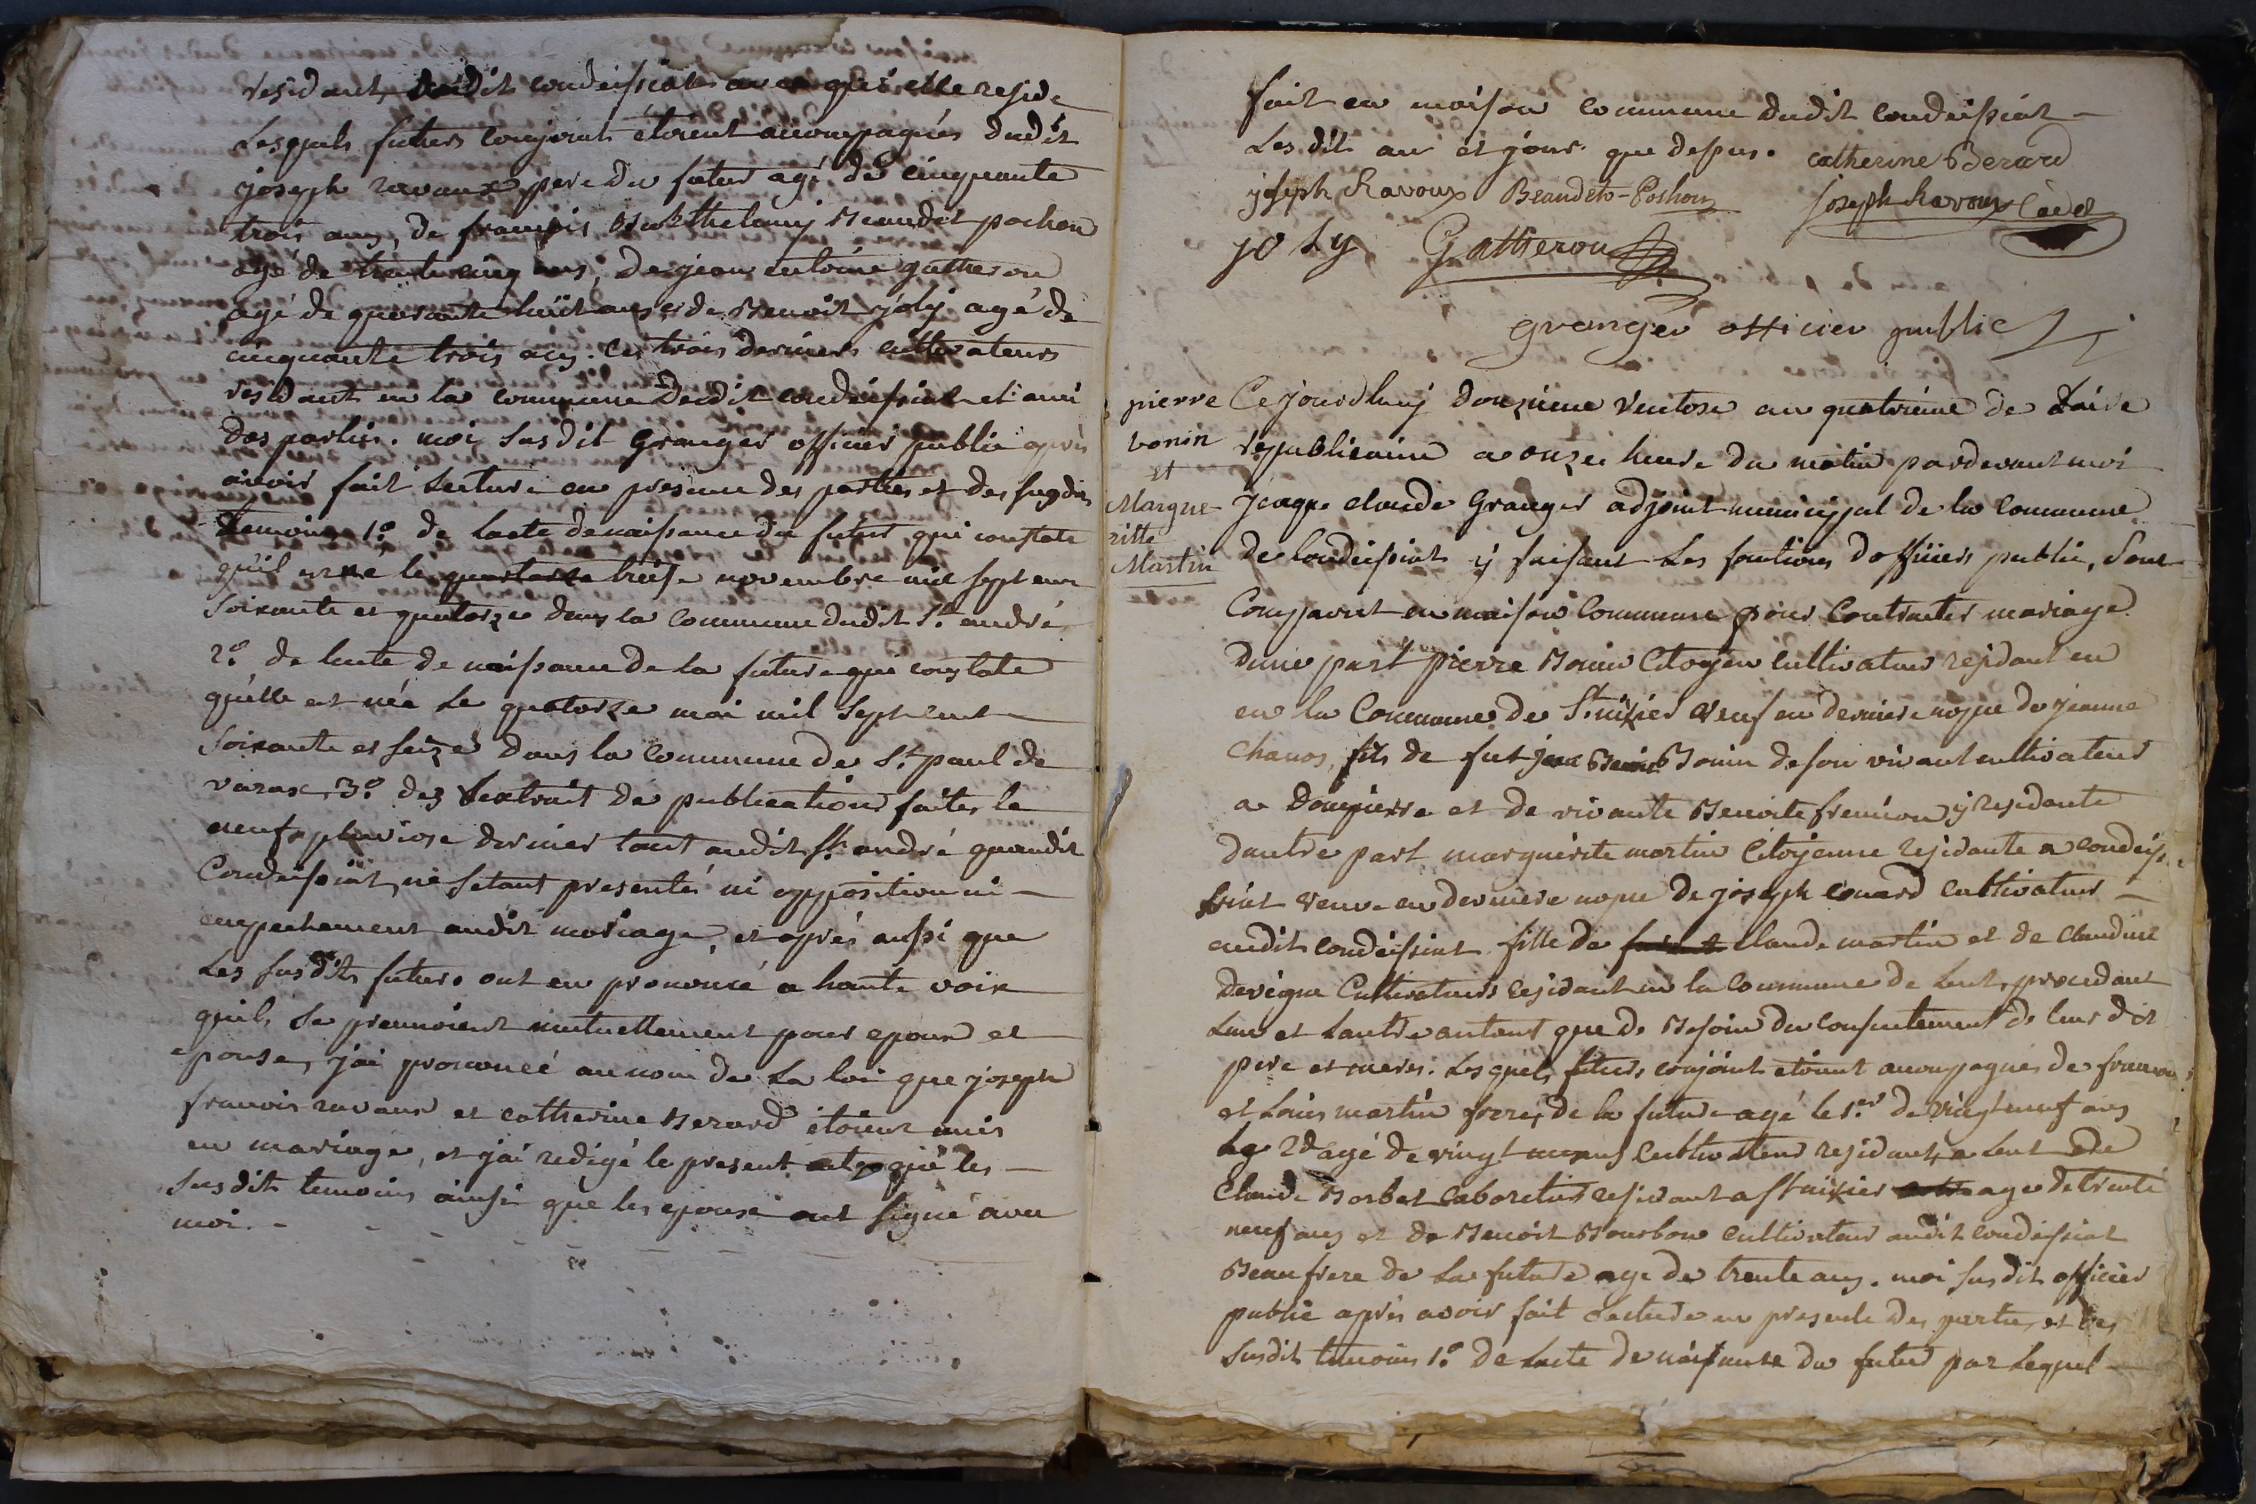 residant audit condeissiat au qui elle reside
Lesquels futurs conjoint étoient accompagnés dudit
joseph ravaux pere du futur agé de cinquante
trois ans, de françois Barthelemy Beaudet pochon
agé de trente cinq ans, de jean antoine gatheron
agé de quarante huit ans et de Benoit joly agé de
cinquante trois ans. ces trois derniers cultivateurs
residants en la commune dudit condeissiat et ami
des parties. moi susdit Granger officier public après
avoir fait lecture en presence des parties et des susdits
temoins 1.° de lacte de naissance du futur qui constate
qu'il est né le treise novembre mil sept cent
soixante et quatorze dans la commune dudit St. andré
2.° de lacte de naissance de la future qui constate
quelle est née le quatorze mai mil sept cent
soixante et seize dans la commune de St. paul de
varax, 3.° des extrait de publications faites le
neuf pluviose dernier tant audit St. andré quaudit
Condeissiat, ne setant presentés ni opposition ni
empechement audit mariage, et après aussi que
Les susdits futurs ont eu prononcé a haute voix
quils se prennoient mutuellement pour epoux et
epouse, j'ai prononcé au nom de La loi que joseph
francois ravaux et catherine Berard étoient unis
en mariage, et j'ai redigé le present acte que les
susdits temoins ainsi que les epoux ont signé avec
moi.
fait en maison commune dudit condeissiat
Les dits an et jour que dessus. catherine Berard
joseph Ravoux Beaudet-Pochon joseph Ravoux Cadet
joly Gatheron
granger officier public
pierre
bonin
et
Margue-
ritte
Martin
Ce jourdhuy douzieme Ventose an quatrieme de Laire
republicaine a onze heure du matin pardevant moi
jcaque claude Granger adjoint municipal de la commune
de Condeissiat y faisant Les fontions dofficier public, Sont
Comparut en maison Commune pour Contracter mariage
Dune part pierre Bonin Citoyen cultivateur residant en
en la Commune de St nizier veuf en derniere nopce de jeanne
chanos, fils de fut Bonin de son vivant cultivateur
a Dompierre et de vivante Benoite fremion y residante
dautre part marguerite martin Citoyenne residante a condeis-
siat veuve en derniere nopce de joseph couard cultivateur
audit condeissiat fille de claude martin et de claudine
devigue Cultivateurs residant en la Commune de Lent, procedant
Lun et Lautre autant que de Besoin du consentement de leur dit
pere et meres. Lesquels futurs conjoint etoient acompagnes de francois
et Louis martin freres de la future agé le 1.er de vingt neuf ans
Le 2d agé de vingt ans Cultivateurs residants a Lent de
Claude Borbet Cabaretier residant a St nizier age de trente
neuf ans et de Benoit Bourbon cultivateur audit condeissiat
Beaufrere de La future age de trente ans. moi susdit officier
public après avoir fait Lecture en presence des parties et des
susdit temoins 1.° de Lacte de naissance du futur par Lequel